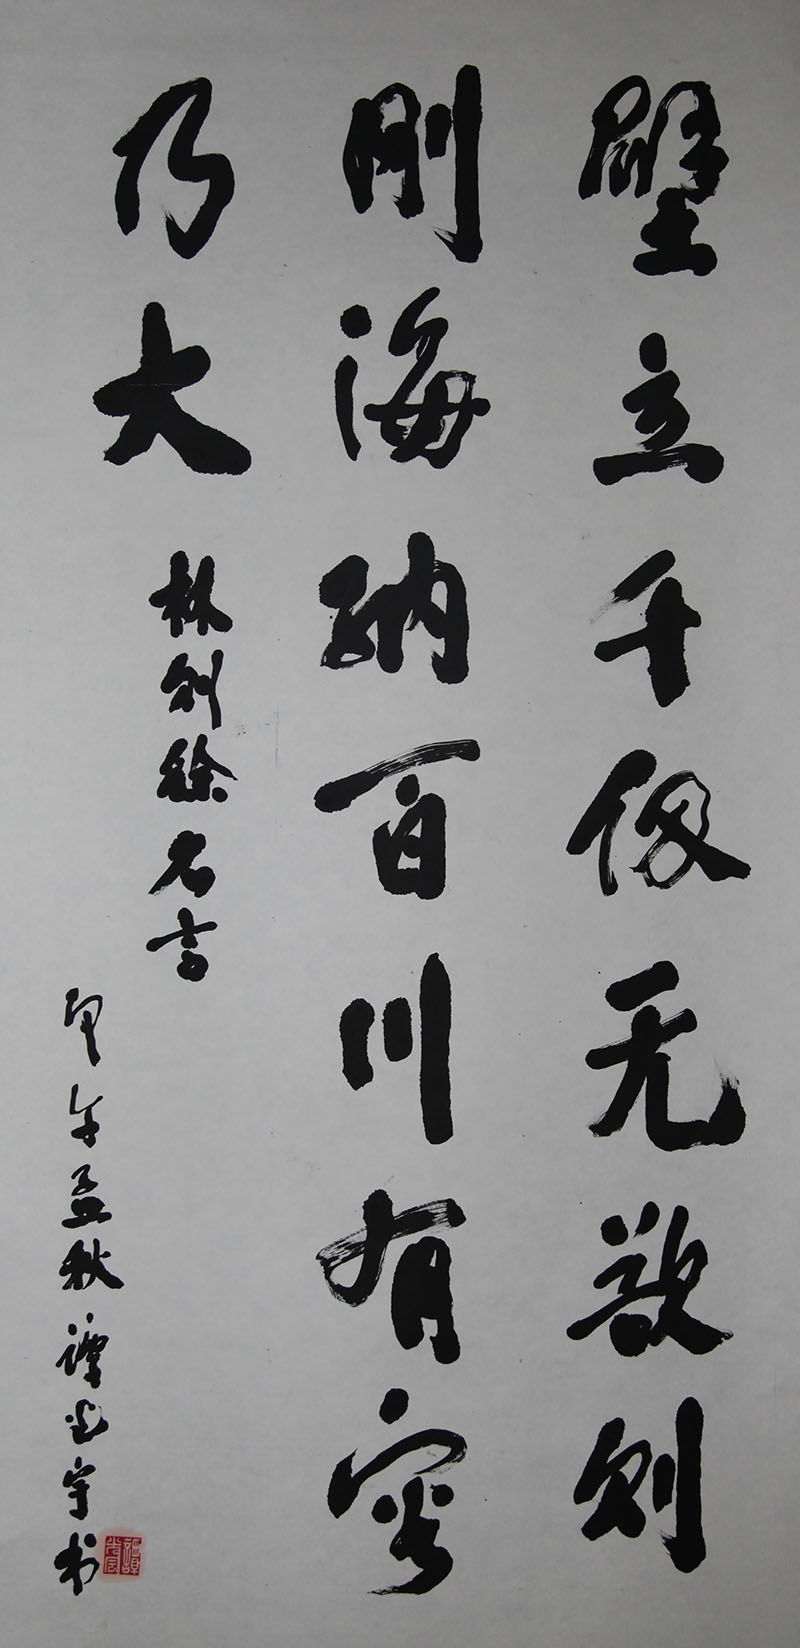 壁立千仞无欲则
刚海纳百川有容
乃大
林则徐名言
甲午孟秋谭宇书